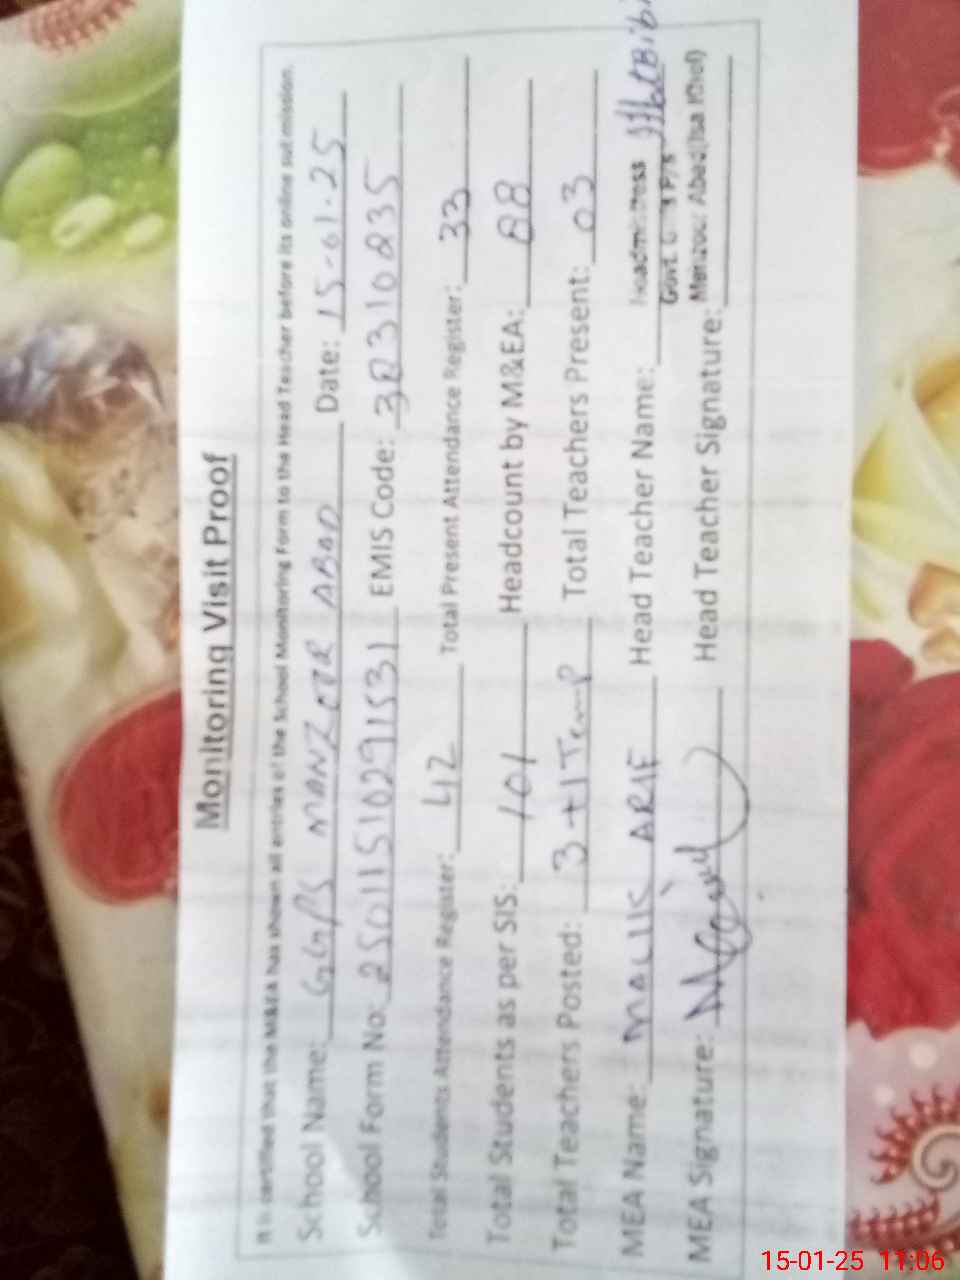 Monitoring Visit Proof
It is certified that the M&EA has shown all entries of the School Monitoring Form to the Head Teacher before its online submission.
School Name: GGPS MANZOOR ABAD Date: 15-01-25
School Form No: 25011510291531 EMIS Code: 38310235
Total Students Attendance Register: 42 Total Present Attendance Register: 33
Total Students as per SIS: 101 Headcount by M&EA: 88
Total Teachers Posted: 3+1Temp Total Teachers Present: 03
MEA Name: MALIK ARIF Head Teacher Name: Headmistress
Govt. G P/S
Manzoor Abad (Isa Khel)
MEA Signature: Head Teacher Signature:
15-01-25 11:06